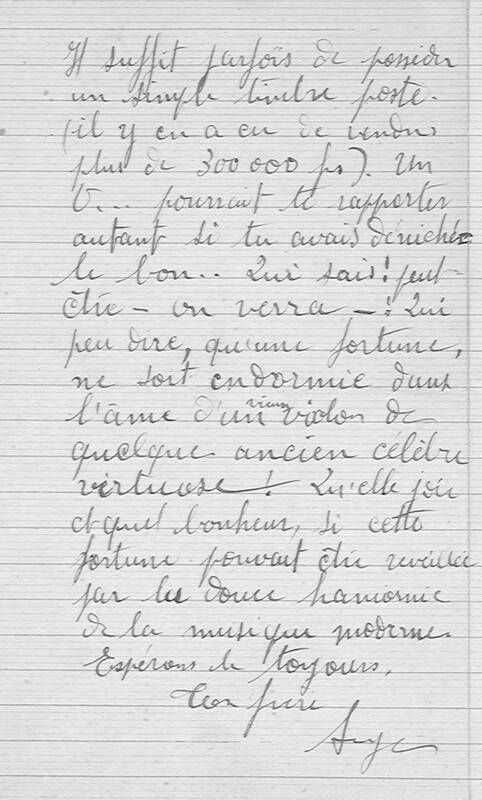 Il suffit parfois de posséder
un simple timbre poste.
(il y en a eu de vendus
plus de 300 000 frs). Un
V... pourrait te rapporter
autant si tu avais déniché
le bon.. Qui sais! peut-
être - on verra -! Qui
peu dire, qu'une fortune,
ne soit endormie dans
l'âme d'un vieux violon de
quelque ancien célèbre
virtuose! Qu'elle joie
et quel bonheur, si cette
fortune pouvait être reveillée
par la douce harmonie
de la musique moderne.
Espérons le toujours.
Ton frère